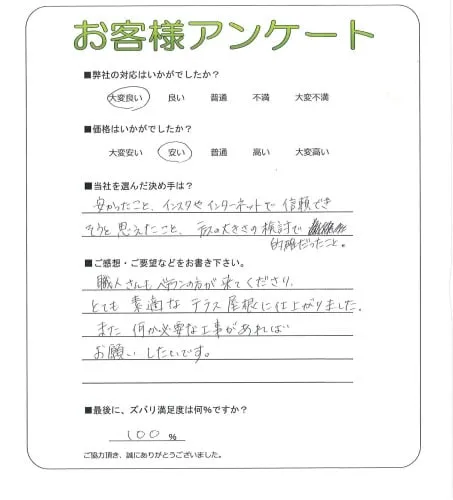 お客様アンケート
■弊社の対応はいかがでしたか？
大変良い 良い 普通 不満 大変不満
■価格はいかがでしたか？
大変安い 安い 普通 高い 大変高い
■当社を選んだ決め手は？
安かったこと、インスタやインターネットで信頼でき
そうと思えたこと、テラスの大きさの検討で
的確だったこと。
■ご感想・ご要望などをお書き下さい。
職人さんもベテランの方が来てくださり、
とても素適なテラス屋根に仕上がりました。
また何か必要な工事があれば
お願いしたいです。
■最後に、ズバリ満足度は何%ですか？
100 %
ご協力頂き、誠にありがとうございました。